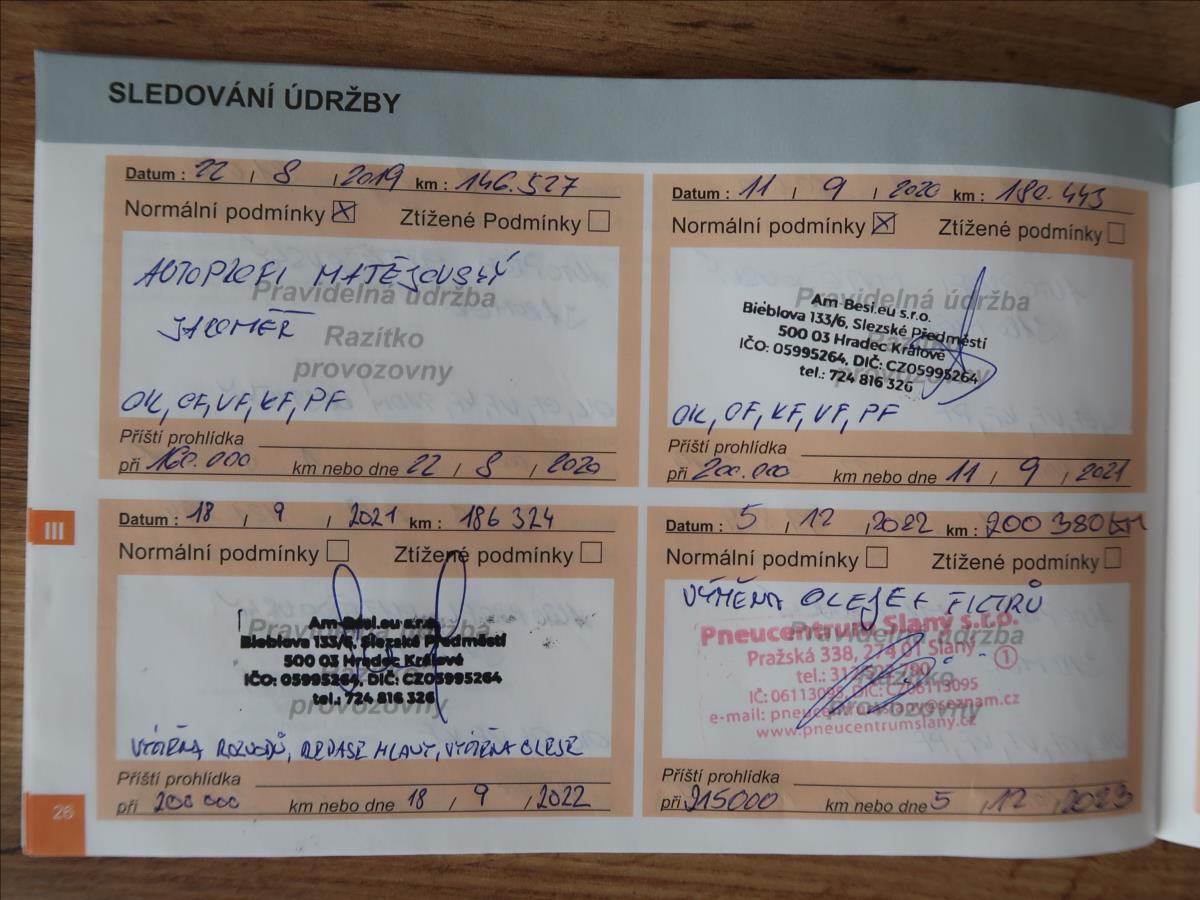 SLEDOVÁNÍ ÚDRŽBY
Datum : 22 / 8 / 2019 km : 146.527
Normální podmínky Ztížené Podmínky
AUTOPROFI MATĚJOVSKÝ
Pravidelná údržba
JAROMĚŘ
Razítko
provozovny
OK, OF, VF, KF, PF
Příští prohlídka
při 160.000 km nebo dne 22 / 8 / 2020
Datum : 11 / 9 / 2020 km : 180.443
Normální podmínky Ztížené podmínky
Pravidelná údržba
Am-Besi.eu s.r.o.
Bieblova 133/6, Slezské Předměstí
500 03 Hradec Králové
IČO: 05995264, DIČ: CZ05995264
tel.: 724 816 326
provozovny
OK, OF, KF, VF, PF
Příští prohlídka
při 200.000 km nebo dne 11 / 9 / 2021
III
Datum : 18 / 9 / 2021 km : 186 324
Normální podmínky Ztížené podmínky
Am-Besi.eu s.r.o.
Pravidelná údržba
Bieblova 133/6, Slezské Předměstí
500 03 Hradec Králové
IČO: 05995264, DIČ: CZ05995264
tel.: 724 816 326
provozovny
VÝMĚNA ROZVODŮ, REPASE HLAVY, VÝMĚNA OLEJE
Příští prohlídka
při 200 000 km nebo dne 18 / 9 / 2022
Datum : 5 / 12 / 2022 km : 200 380 km
Normální podmínky Ztížené podmínky
VÝMĚNA OLEJE+ FILTRŮ
Pneucentrum Slaný s.r.o.
Pravidelná údržba
Pražská 338, 274 01 Slaný
1
Razítko
IČ: 06113095, DIČ: CZ06113095
provozovny
e-mail: pneucentrumslany@seznam.cz
www.pneucentrumslany.cz
Příští prohlídka
při 215000 km nebo dne 5 / 12 / 2023
26